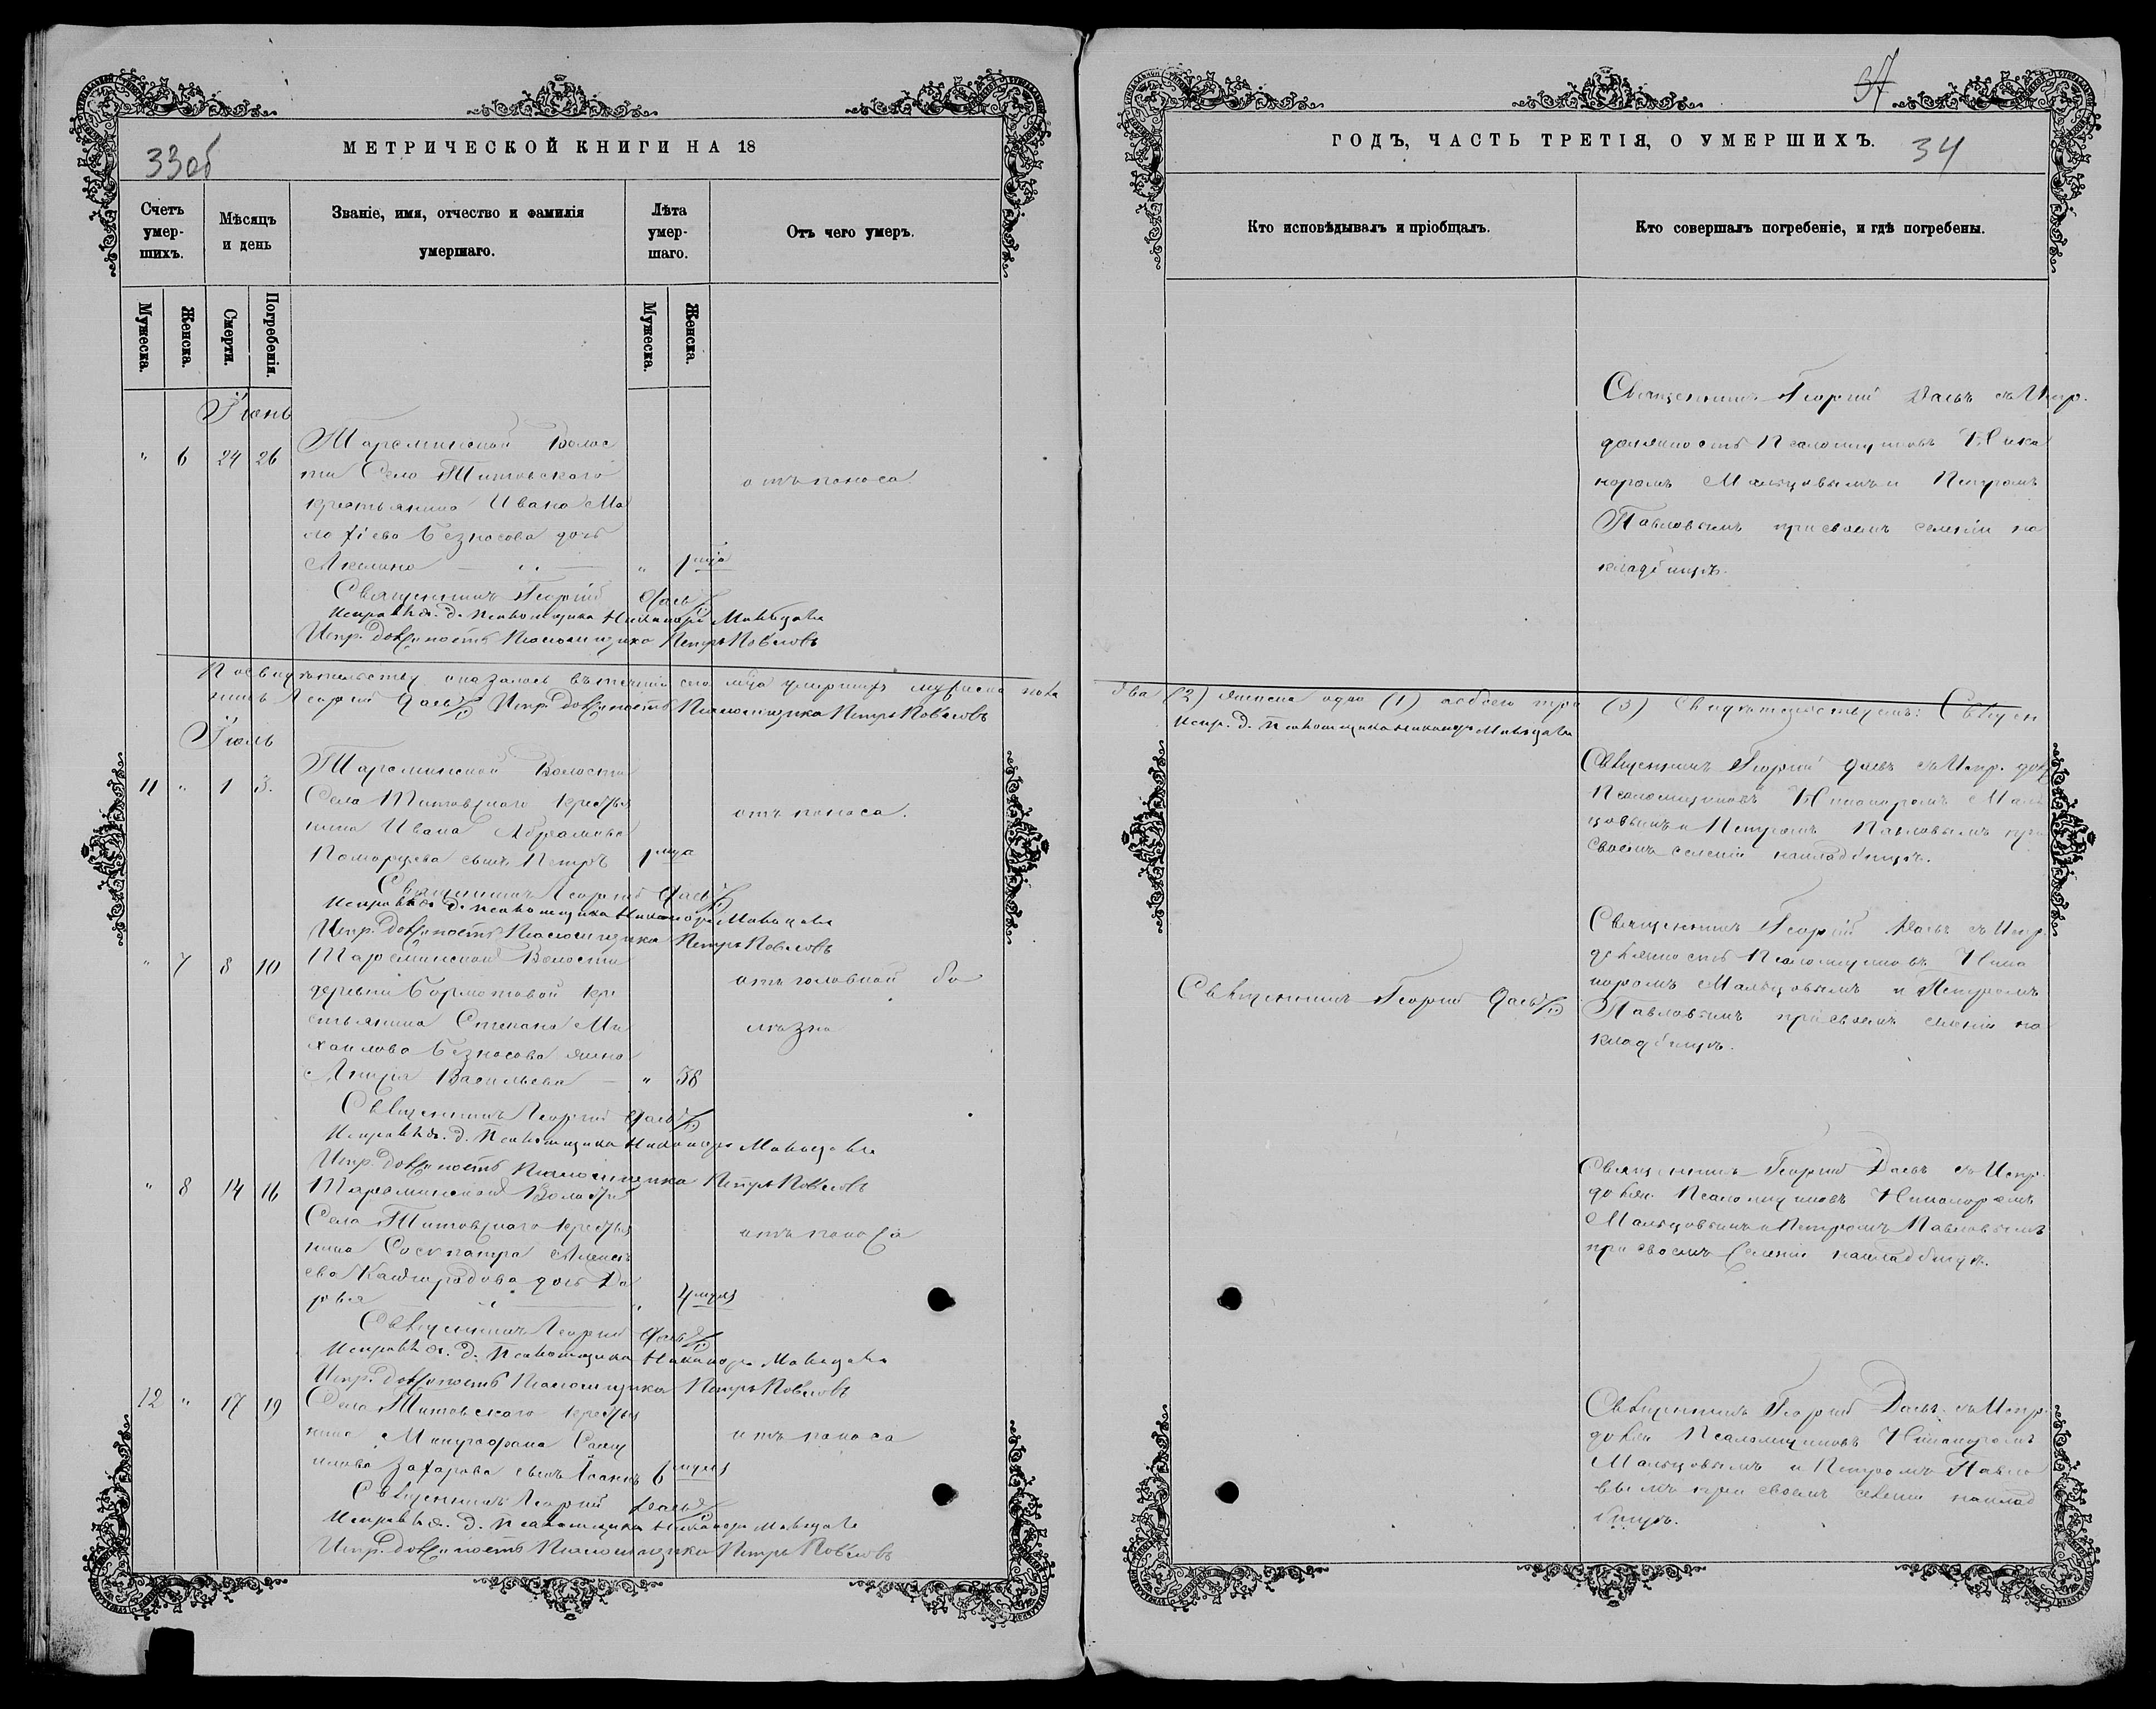 33об
МЕТРИЧЕСКОЙ КНИГИ НА 18
Счетъ умер-шихъ.
Мѣсяцъ и день
Званіе, имя, отчество и фамилія умершаго.
Лѣта умер-шаго.
Отъ чего умеръ.
Мужеска.
Женска.
Смерти.
Погребенія.
Мужеска.
Женска.
Іюнь
" 6 24 26
Тарсминской Волос
ти Село Титовского
крестьянина Ивана Ма
лофіева Безносова дочь
Акилина " 1 мца
отъ поноса.
Священникъ Георгій
Исправл. д. Псаломщика Никаноръ Мальцевъ
Испр. должность Псаломщика Петръ Павловъ
По свидѣтельству оказалось въ теченіи сего мца умершихъ мужеска пола
никъ Георгій Испр. должность Псаломщика Петръ Павловъ
Іюль
11 " 1 3.
Тарсминской Волости
Села Титовского крестья
нина Ивана Абрамова
Поморцева сынъ Петръ 1 мца
отъ поноса.
Священникъ Георгій
Исправл. д. Псаломщика Никаноръ Мальцевъ
Испр. должность Псаломщика Петръ Павловъ
" 7 8 10
Тарсминской Волости
деревни Бормотовой кре
стьянина Степана Ми
хаилова Безносова жена
Васильева " 58
отъ головной бо
лѣзни
Священникъ Георгій
Исправл. д. Псаломщика Никаноръ Мальцевъ
Испр. должность Псаломщика Петръ Павловъ
" 8 14 16
Тарсминской Волости
Села Титовского крестья
нина Сосипатра Алексѣ
ева дочь Да
рья " 4 мцевъ
отъ поноса
Священникъ Георгій
Исправл. д. Псаломщика Никаноръ Мальцевъ
Испр. должность Псаломщика Петръ Павловъ
12 " 17 19
Села Титовского крестья
нина
Захарова сынъ Іоаннъ 6 мцевъ
отъ поноса
Священникъ Георгій
Исправл. д. Псаломщика Никаноръ Мальцевъ
Испр. должность Псаломщика Петръ Павловъ
34
ГОДЪ, ЧАСТЬ ТРЕТІЯ, О УМЕРШИХЪ.
Кто исповѣдывалъ и пріобщалъ.
Кто совершалъ погребеніе, и гдѣ погребены.
Священникъ Георгій съ Испр.
должность Псаломщиковъ Ника
норомъ Мальцовымъ и Петромъ
Павловымъ при своемъ селеніи на
кладбищѣ.
два (2) женска одно (1) обоего три (3) Свидѣтельствуемъ: Священ
Испр. д. Псаломщика Никаноръ Мальцевъ
Священникъ Георгій съ Испр. долж
Псаломщиковъ Никаноромъ Маль
цовымъ и Петромъ Павловымъ при
своемъ селеніи на кладбищѣ.
Священникъ Георгій
Священникъ Георгій съ Испр.
должность Псаломщиковъ Ника
норомъ Мальцовымъ и Петромъ
Павловымъ при своемъ селеніи на
кладбищѣ.
Священникъ Георгій съ Испр.
должн. Псаломщиковъ Никаноромъ
Мальцовымъ и Петромъ Павловымъ
при своемъ селеніи на кладбищѣ.
Священникъ Георгій съ Испр.
должн Псаломщиковъ Никаноромъ
Мальцовымъ и Петромъ Павло
вымъ при своемъ селеніи на клад
бищѣ.